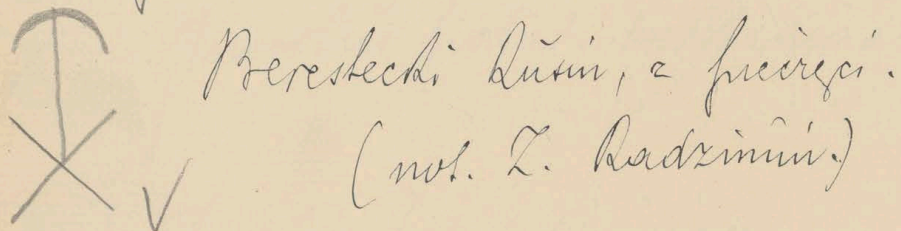 Berestecki Rusin, z pieczęci.
(not. Z. Radzimiń.)